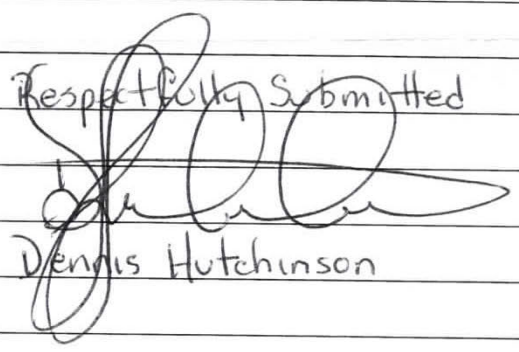 Respectfully Submitted
Dennis Hutchinson